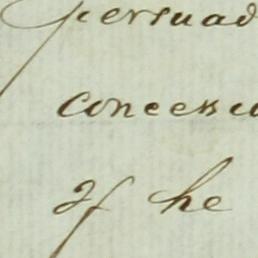 persuad
concess
if he